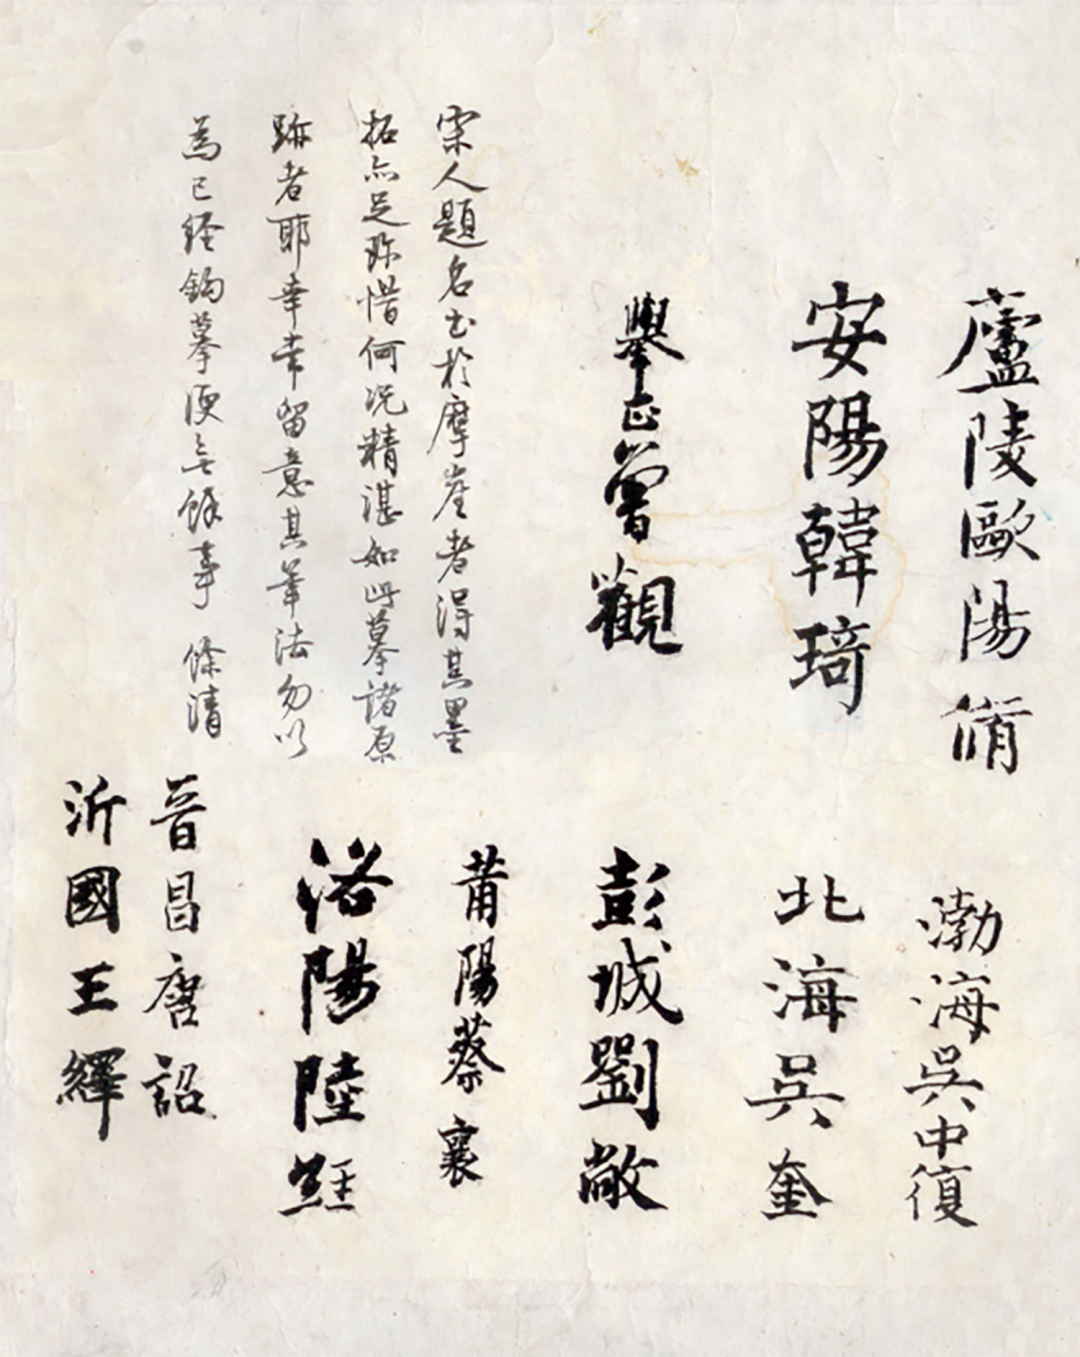 廬陵歐陽脩
安陽韓琦
舉正曾觀
渤海吳中復
北海吳奎
彭城劉敞
莆陽蔡襄
洛陽陸經
晉昌唐詔
沂國王繹
宋人題名書於摩崖者得其墨
拓亦足珍惜何況精湛如此摹諸原
跡者耶幸幸留意其筆法勿以
為已經鈎摹便無餘事 條清